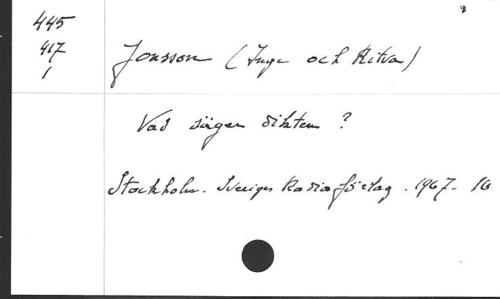 445
417
1
Jonsson (Inge och Ritva)
Vad säger dikten ?
Stockholm. Sveriges Radio förlag . 1967- 16